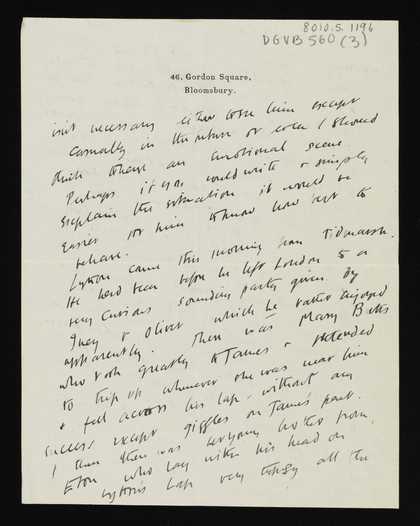 8010.5.1196
DGVB 560 (3)
46, Gordon Square,
Bloomsbury.
isn't necessary either to see him except
casually in the future or even I should
think to have an emotional scene
Perhaps if you could write & simply
explain the situation it would be
easier for him to know how to
behave.
Lytton came this morning from Tidmarsh.
He had been before he left London to a
very curious sounding party given by
& Oliver which he rather enjoyed
apparently. There was Mary Butts
who took greatly to James & pretended
to trip up whenever she was near him
& fall across his lap - without any
success except giggles on James's part.
& then there was a young from
Eton who lay with his head on
Lytton's lap very all the